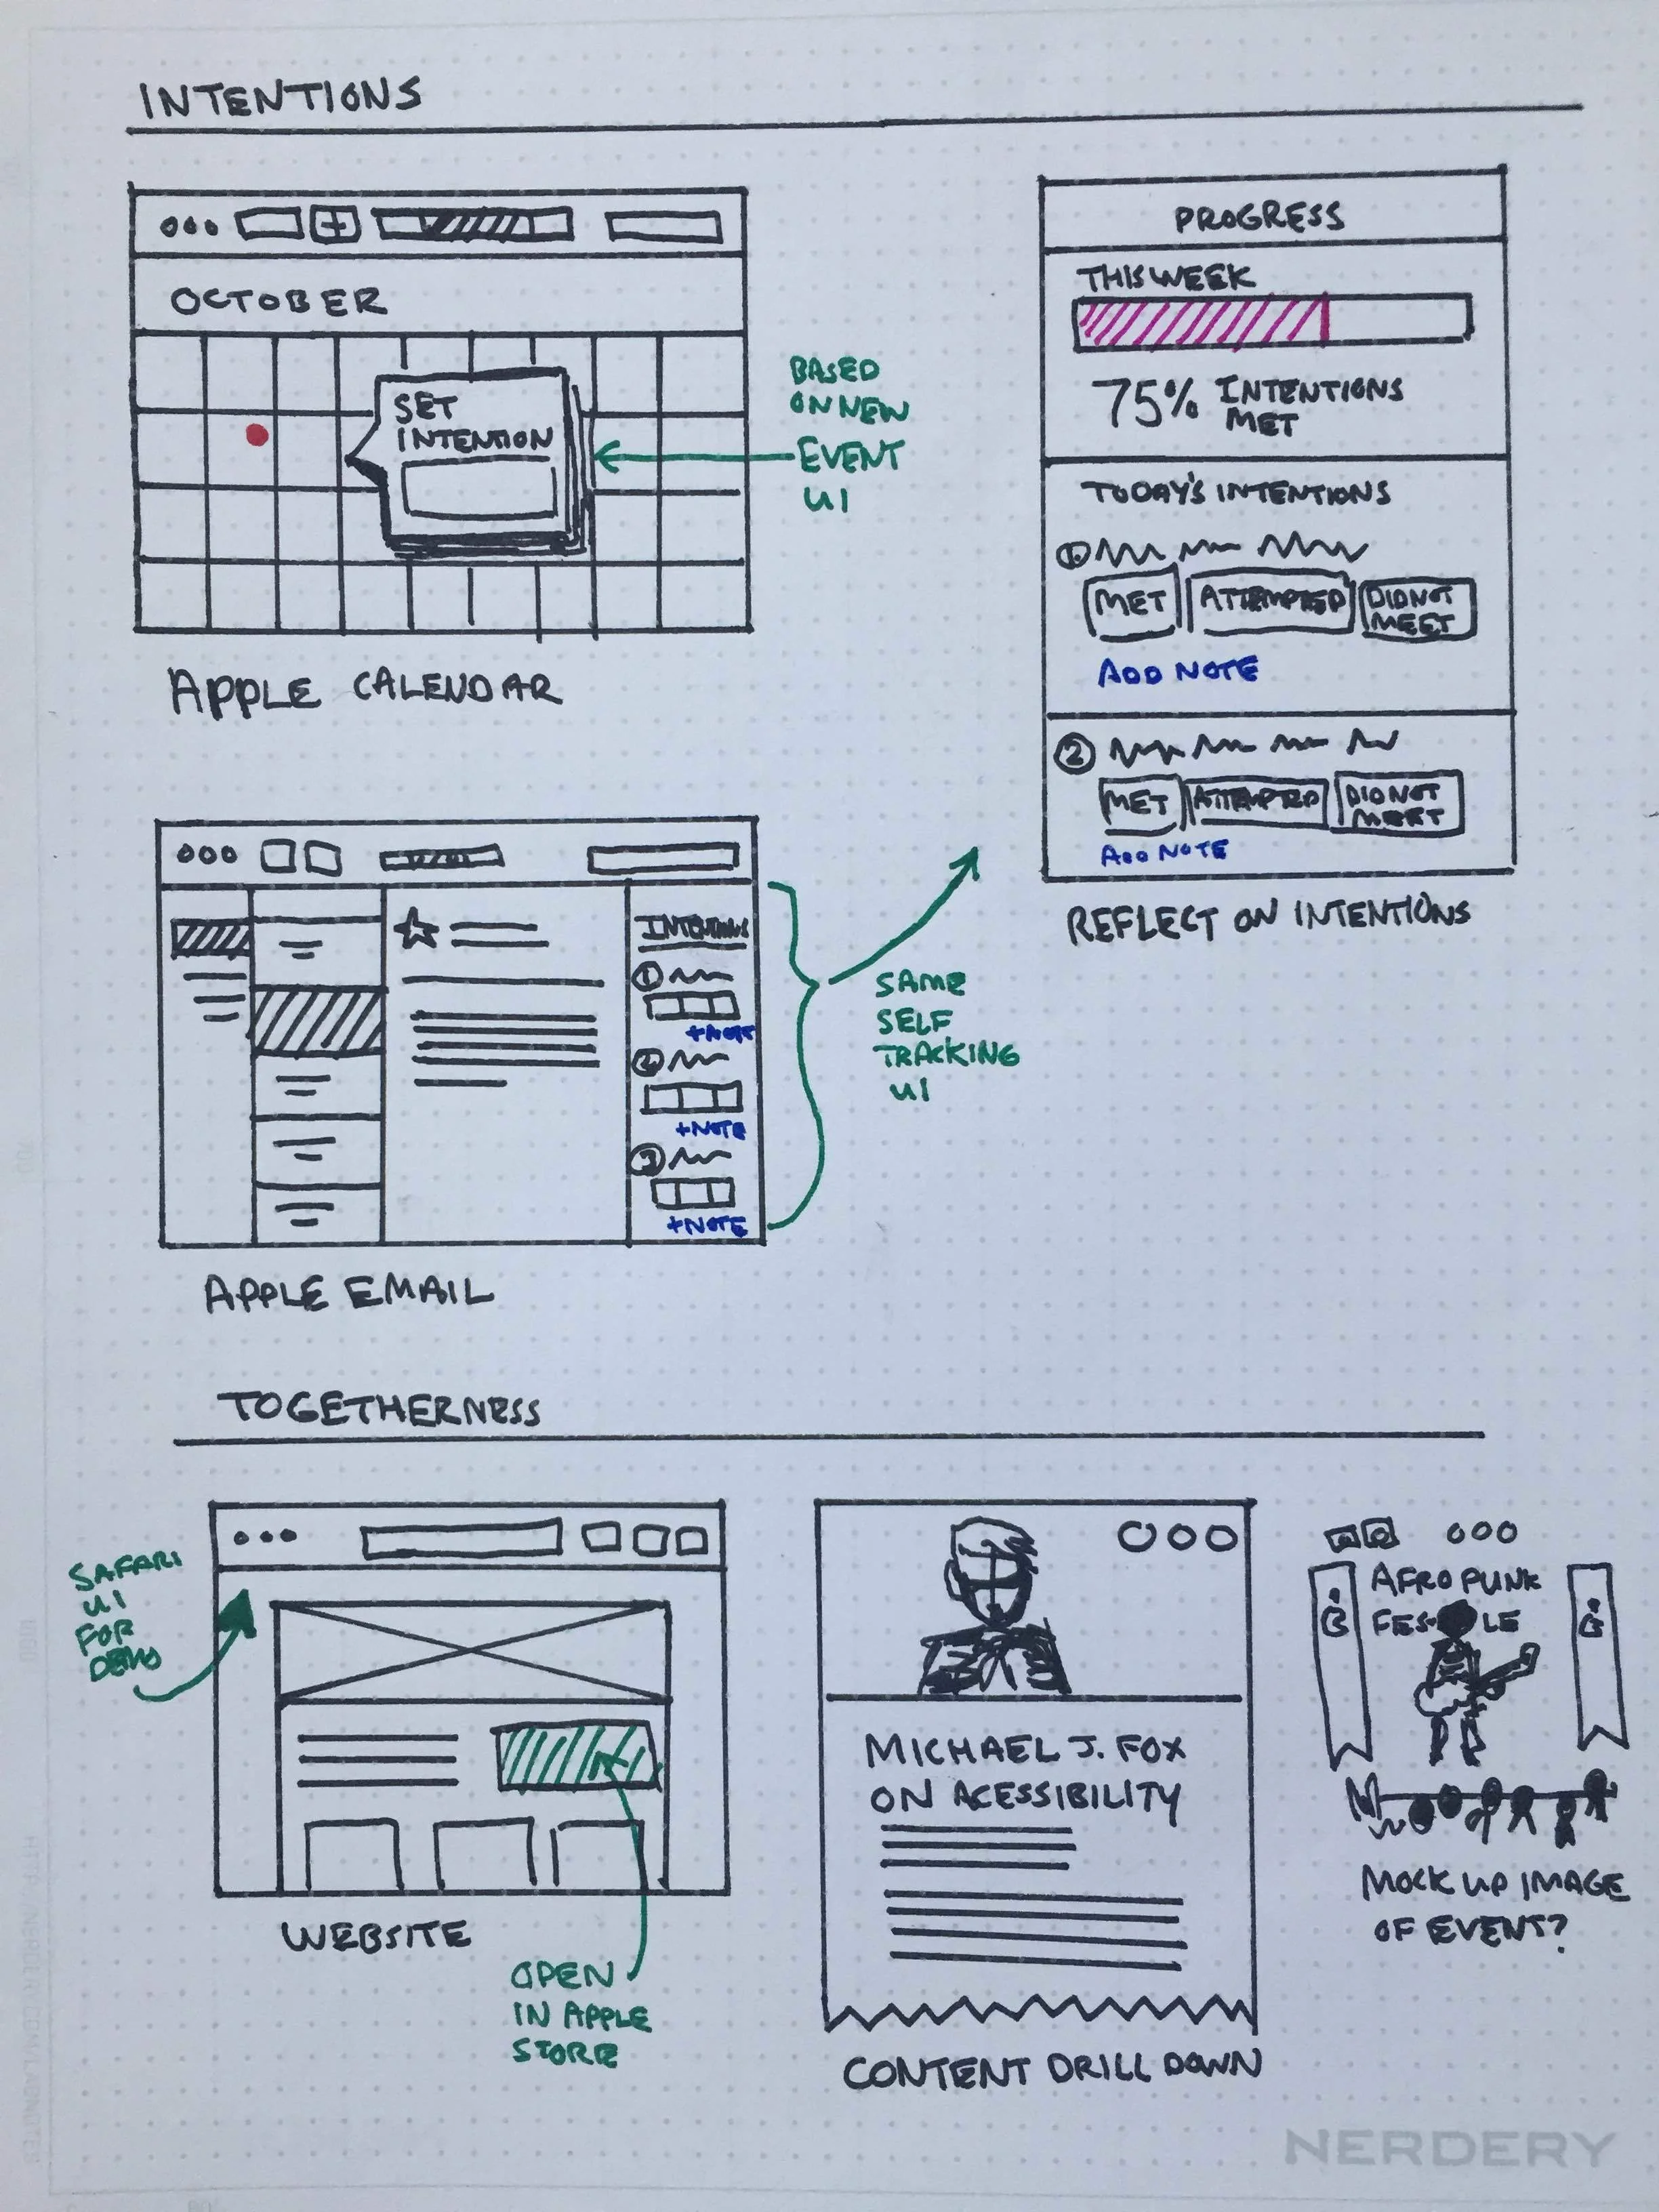 INTENTIONS
OCTOBER
SET
INTENTION
BASED
ON NEW
EVENT
UI
APPLE CALENDAR
PROGRESS
THIS WEEK
75% INTENTIONS
MET
TODAY'S INTENTIONS
1
MET ATTEMPTED DID NOT
MEET
ADD NOTE
2
MET ATTEMPTED DID NOT
MEET
ADD NOTE
REFLECT ON INTENTIONS
INTENTIONS
1
+NOTE
2
+NOTE
3
+NOTE
SAME
SELF
TRACKING
UI
APPLE EMAIL
TOGETHERNESS
SAFARI
UI
FOR
DEMO
WEBSITE
OPEN
IN APPLE
STORE
MICHAEL J. FOX
ON ACESSIBILITY
CONTENT DRILL DOWN
AFROPUNK
MOCK UP IMAGE
OF EVENT?
NERDERY